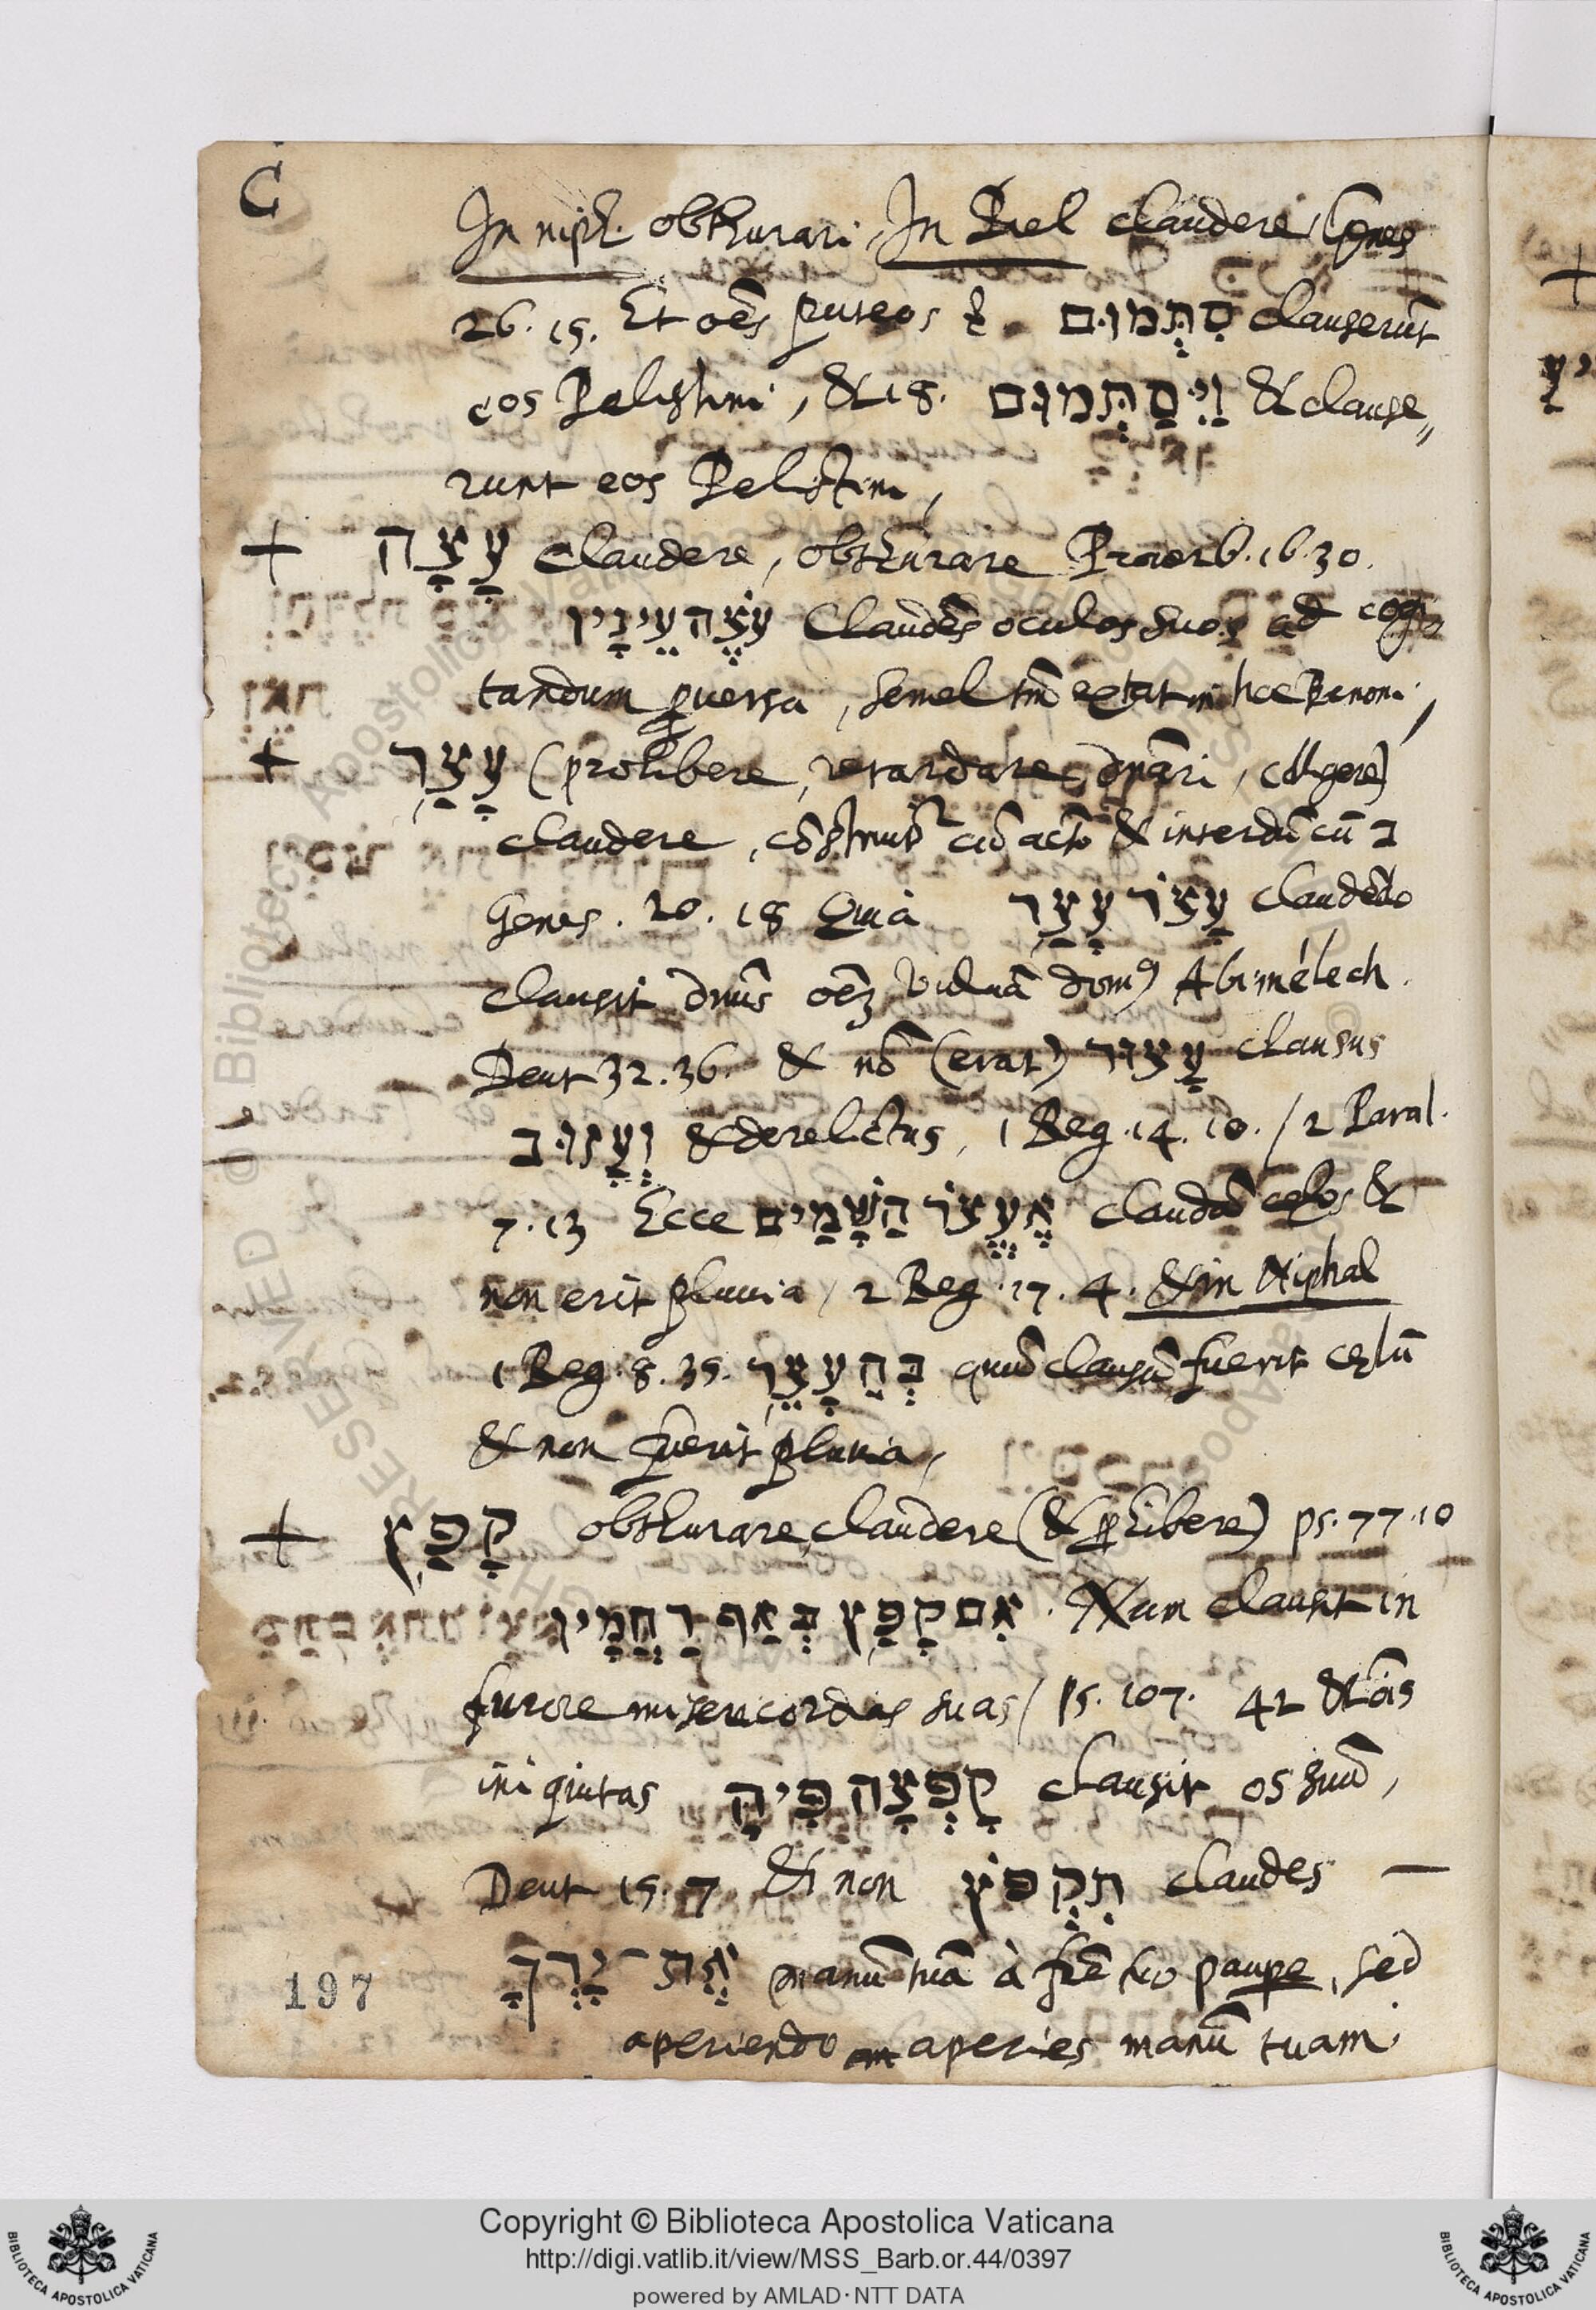 C
In niph. obthurari, In Piel claudere, Genes
26. 15. Et oēs puteos סִתְּמוּם clauserūt
eos Pelistim, & 18. וַיְסַתְּמוּם & clause„
runt eos Pelistim,
+ עָצָה claudere, obthurare Proverb. 16. 30.
עֹצֶה עֵינָיו Claudēs oculos suos ad cogi
tandum pversa, semel tm̄ extat in hac
+ עָצַר (prohibere, retardare, dnāri, colligere)
claudere, cōstruit cū actō & interdū cū ב
Genes. 20. 18 Quia עָצֹר עָצַר claudēdo
clausit dnūs oēz vuluā dom9 Abimélech.
Deut 32. 36. & nō (erat) עָצוּר clausus
וְעָזוּב & derelictus, 1 Reg. 14. 10. / 2 Paral.
7. 13 Ecce אֶעֱצֹר הַשָּׁמַיִם claudā cęlos &
non erit pluuia / 2 Reg. 17. 4. & in Niphal
1 Reg. 8. 35. בְּהֵעָצֵר quū clausū fuerit cęlū
& non fuerit pluuia,
+ קָפַץ obthurare, claudere (& phibere) ps. 77. 10
אִם קָפַץ בְּאַף רַחֲמָיו. Nun clausit in
furore misericordias suas / ps. 107. 42 & oīs
iniquitas קָפְצָה פִּיהָ clausit os suū,
Deut 15. 7 & non תִקְפֹּץ claudes —
אֶת־יָדְךָ manū tuā à frē tuo paupe, sed
aperiendo aperies manū tuam.
197
Copyright © Biblioteca Apostolica Vaticana
http://digi.vatlib.it/view/MSS_Barb.or.44/0397
powered by AMLAD·NTT DATA
BIBLIOTECA APOSTOLICA VATICANA
BIBLIOTECA APOSTOLICA VATICANA